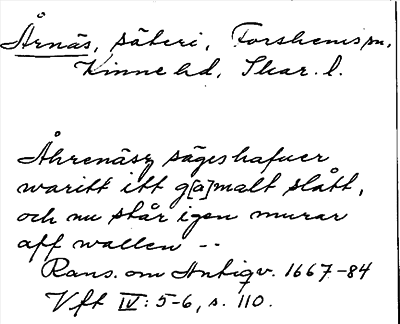 Årnäs, säteri, Forshems sn,
Kinne hd, Skar. l.
Åhrenäsz säges hafuer
waritt itt g[a]malt slått,
och nu står igen murar
aff wallen --
Rans. om Antiqv. 1667-84
Vft IV: 5-6, s. 110.